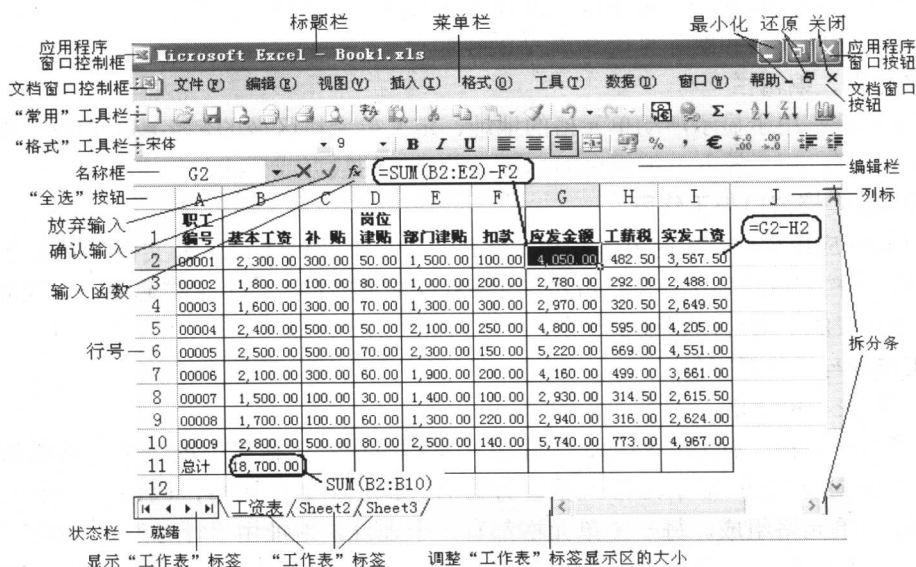 标题栏 菜单栏 最小化 还原 关闭
应用程序
窗口控制框
Microsoft Excel - Book1.xls
应用程序
窗口按钮
文档窗口控制框
文件(F) 编辑(E) 视图(V) 插入(I) 格式(O) 工具(T) 数据(D) 窗口(W) 帮助
文档窗口
按钮
“常用”工具栏
“格式”工具栏
宋体 9 B I U % , €
名称框
G2 =SUM(B2:E2)-F2
编辑栏
“全选”按钮
A B C D E F G H I J
列标
放弃输入
确认输入
输入函数
1 职工编号 基本工资 补 贴 岗位津贴 部门津贴 扣款 应发金额 工薪税 实发工资
=G2-H2
2 00001 2,300.00 300.00 50.00 1,500.00 100.00 4,050.00 482.50 3,567.50
3 00002 1,800.00 100.00 80.00 1,000.00 200.00 2,780.00 292.00 2,488.00
4 00003 1,600.00 300.00 70.00 1,300.00 300.00 2,970.00 320.50 2,649.50
5 00004 2,400.00 500.00 50.00 2,100.00 250.00 4,800.00 595.00 4,205.00
行号
6 00005 2,500.00 500.00 70.00 2,300.00 150.00 5,220.00 669.00 4,551.00
拆分条
7 00006 2,100.00 300.00 60.00 1,900.00 200.00 4,160.00 499.00 3,661.00
8 00007 1,500.00 100.00 30.00 1,400.00 100.00 2,930.00 314.50 2,615.50
9 00008 1,700.00 100.00 60.00 1,300.00 220.00 2,940.00 316.00 2,624.00
10 00009 2,800.00 500.00 80.00 2,500.00 140.00 5,740.00 773.00 4,967.00
11 总计 18,700.00
SUM(B2:B10)
12
工资表 Sheet2 Sheet3
状态栏
就绪
显示“工作表”标签 “工作表”标签 调整“工作表”标签显示区的大小